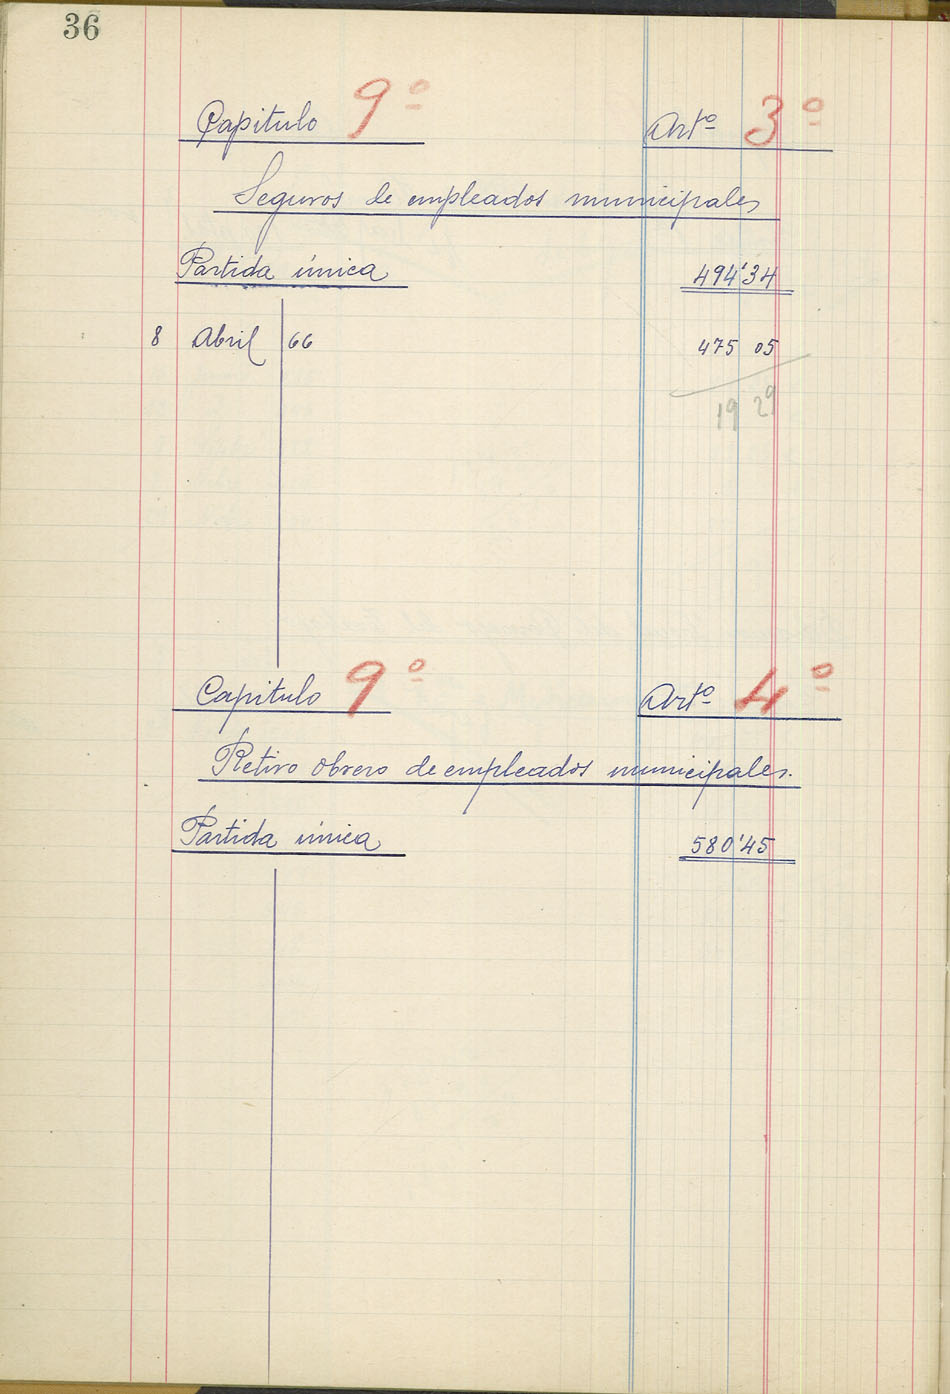 36
Capitulo 9º Artº 3º
Seguros de empleados municipales
Partida única 494'34
8 Abril 66 475 05
19 29
Capitulo 9º Artº 4º
Retiro obrero de empleados municipales.
Partida única 580'45